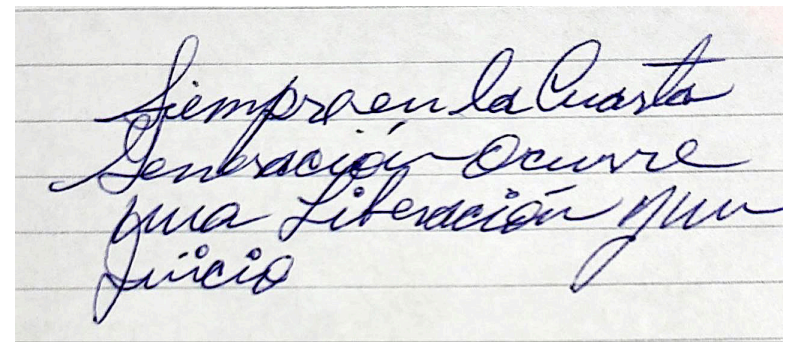 Siempre en la Cuarta
Generación Ocurre
una Liberación y un
Juicio